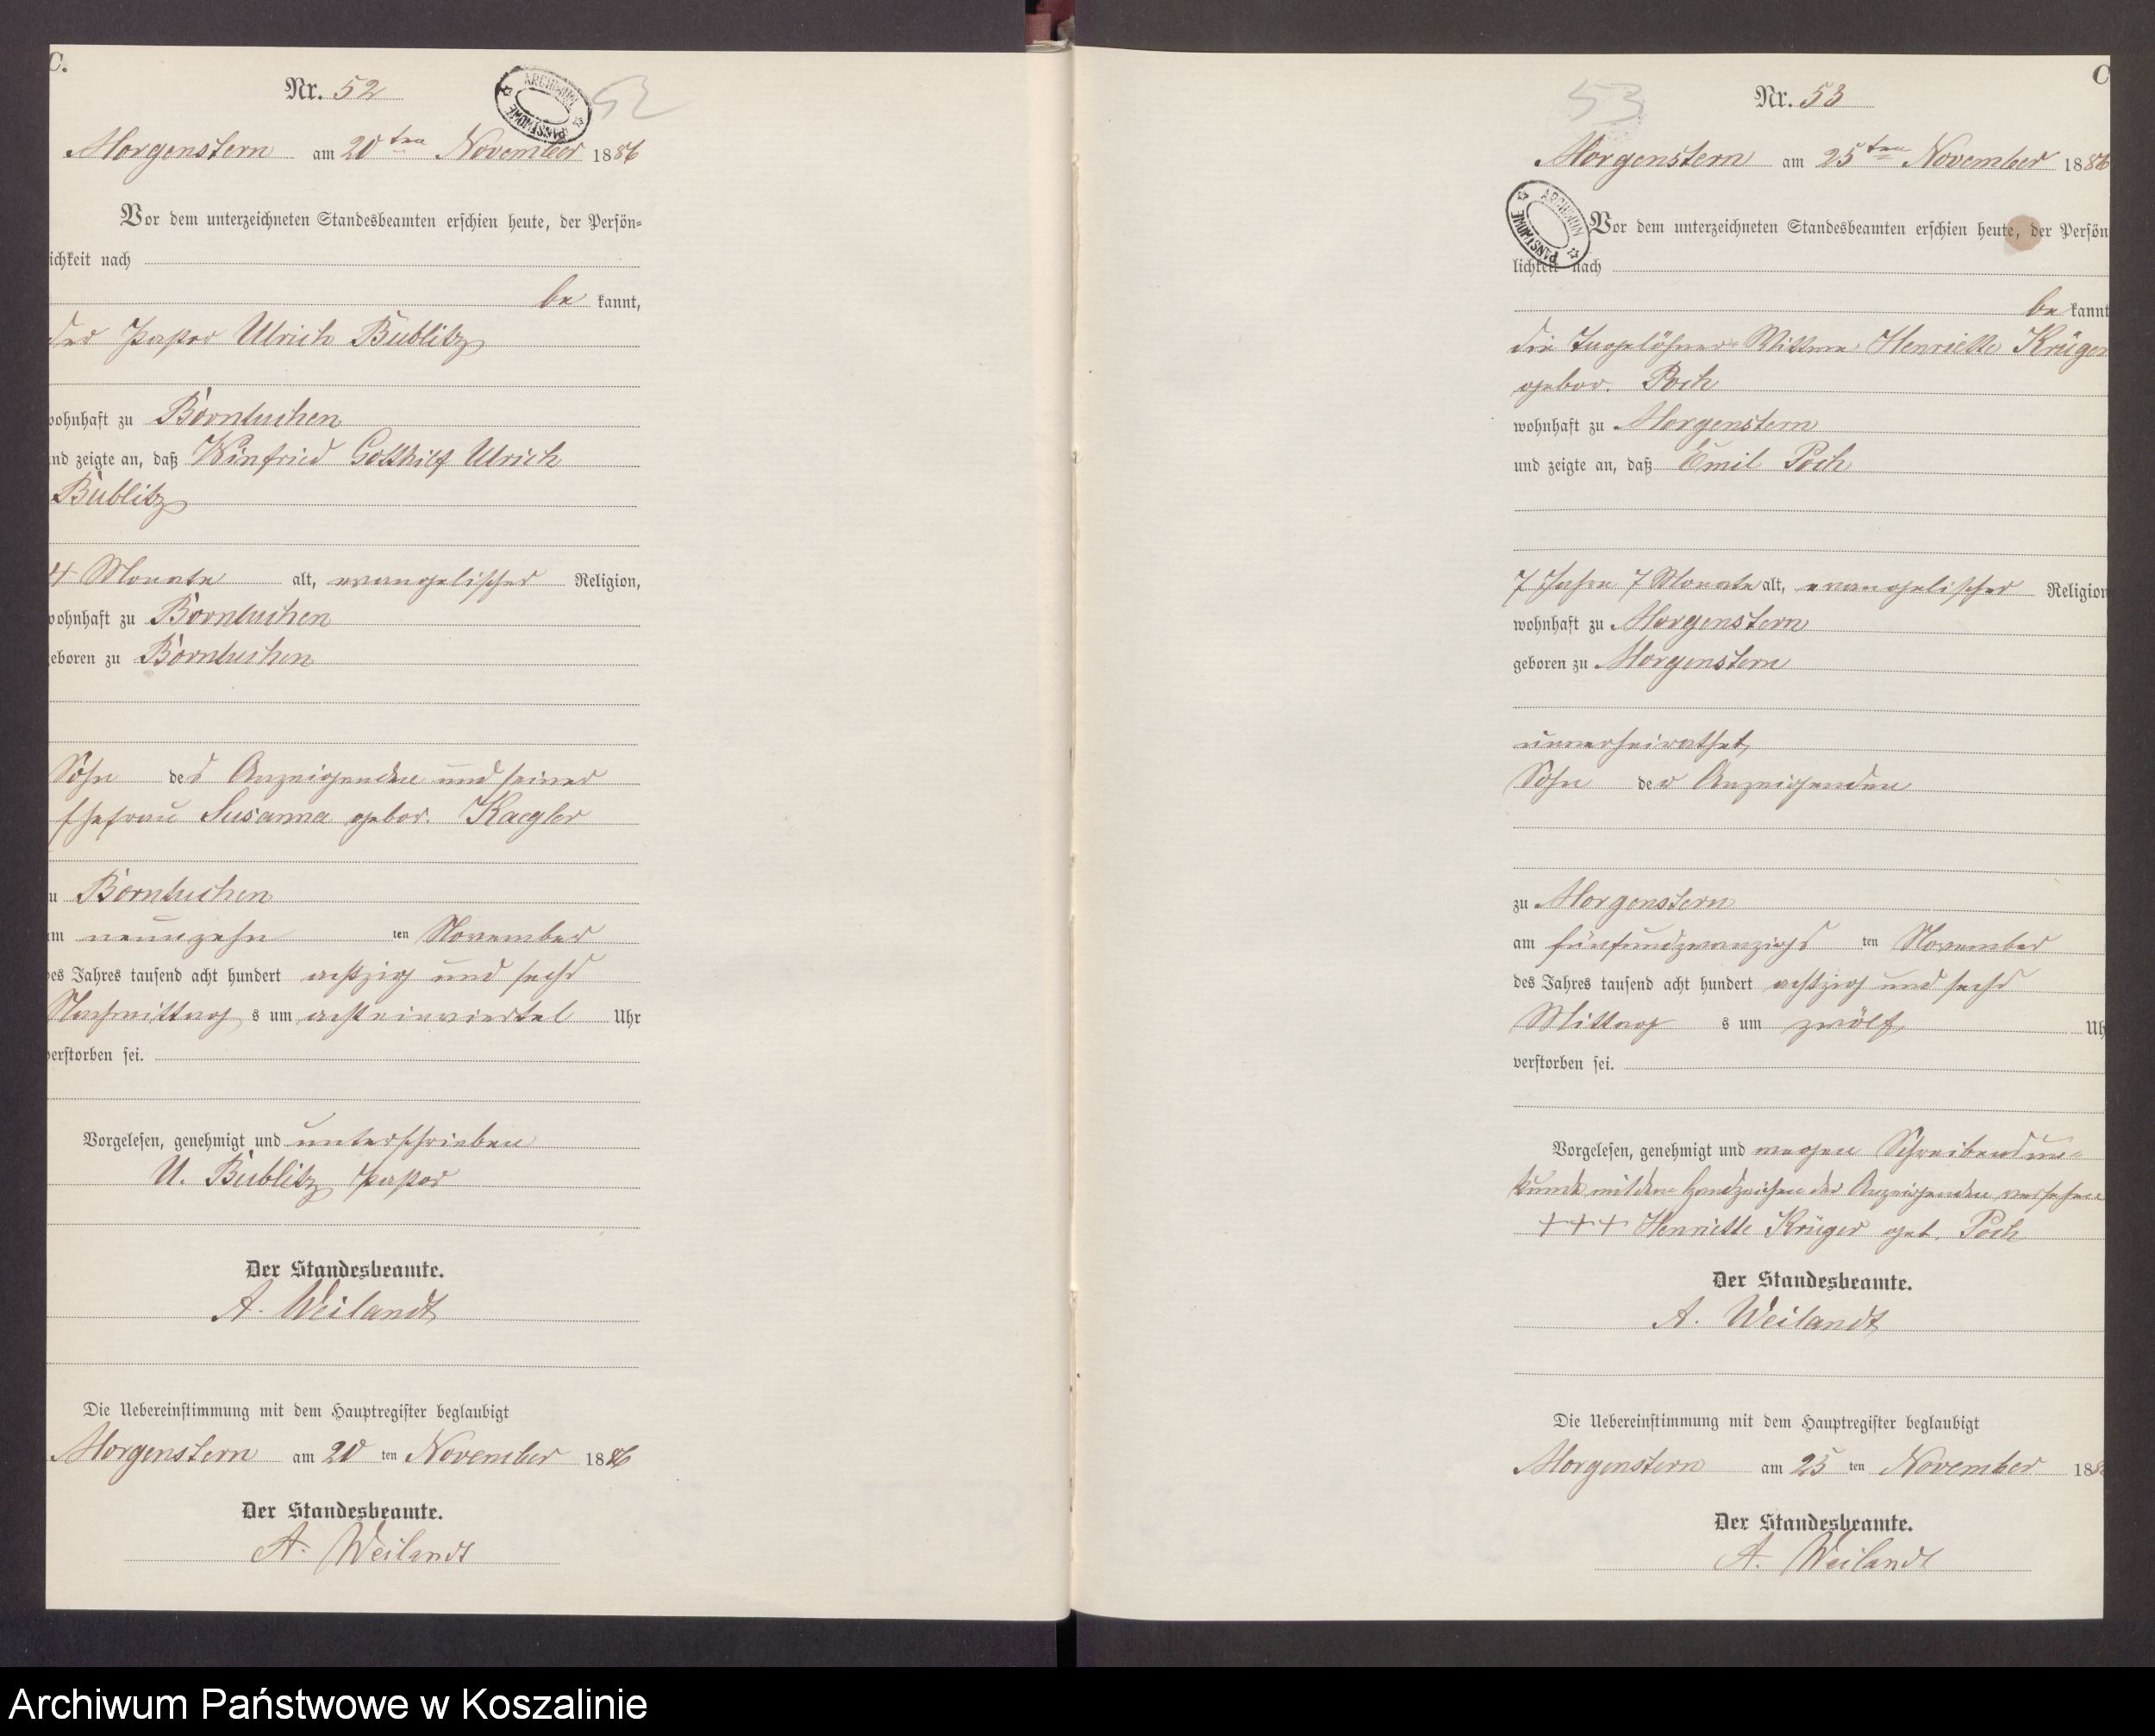 C.
Nr. 52
ARCHIWUM PAŃSTWOWE
52
Morgenstern am 20ten November 1886
Vor dem unterzeichneten Standesbeamten erschien heute, der Persön-
ichkeit nach
be kannt,
der Pastor Ulrich Bublitz
wohnhaft zu Borntuchen
und zeigte an, daß Winfried Gotthilf Ulrich
Bublitz
4 Monate alt, evangelischer Religion,
wohnhaft zu Borntuchen
geboren zu Borntuchen
Sohn des Anzeigenden und seiner
Ehefrau Susanna gebor. Kaegler
zu Borntuchen
am neunzehn ten November
des Jahres tausend acht hundert achtzig und sechs
Nachmittag s um achteinviertel Uhr
verstorben sei.
Vorgelesen, genehmigt und unterschrieben
U. Bublitz Pastor
Der Standesbeamte.
A. Weilandt
Die Uebereinstimmung mit dem Hauptregister beglaubigt
Morgenstern am 20 ten November 1886
Der Standesbeamte.
A. Weilandt
C
53
Nr. 53
Morgenstern am 25ten November 1886
ARCHIWUM PAŃSTWOWE
Vor dem unterzeichneten Standesbeamten erschien heute, der Persön
lichkeit nach
be kannt
die Tagelöhner-Wittwe Henriette Krüger
gebor. Poch
wohnhaft zu Morgenstern
und zeigte an, daß Emil Poch
7 Jahre 7 Monate alt, evangelischer Religion
wohnhaft zu Morgenstern
geboren zu Morgenstern
unverheirathet,
Sohn der Anzeigenden
zu Morgenstern
am fünfundzwanzigs ten November
des Jahres tausend acht hundert achtzig und sechs
Mittag s um zwölf Uh
verstorben sei.
Vorgelesen, genehmigt und wegen Schreibensun-
kunde mit dem Handzeichen der Anzeigenden versehen
+++ Henriette Krüger geb. Poch
Der Standesbeamte.
A. Weilandt
Die Uebereinstimmung mit dem Hauptregister beglaubigt
Morgenstern am 25 ten November 188
Der Standesbeamte.
A. Weilandt
Archiwum Państwowe w Koszalinie